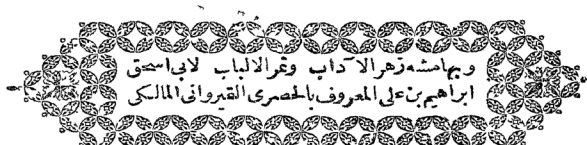 وبهامشه زهر الآداب وثمر الالباب لابى اسحق
ابراهيم بن على المعروف بالحصرى القيروانى المالكى